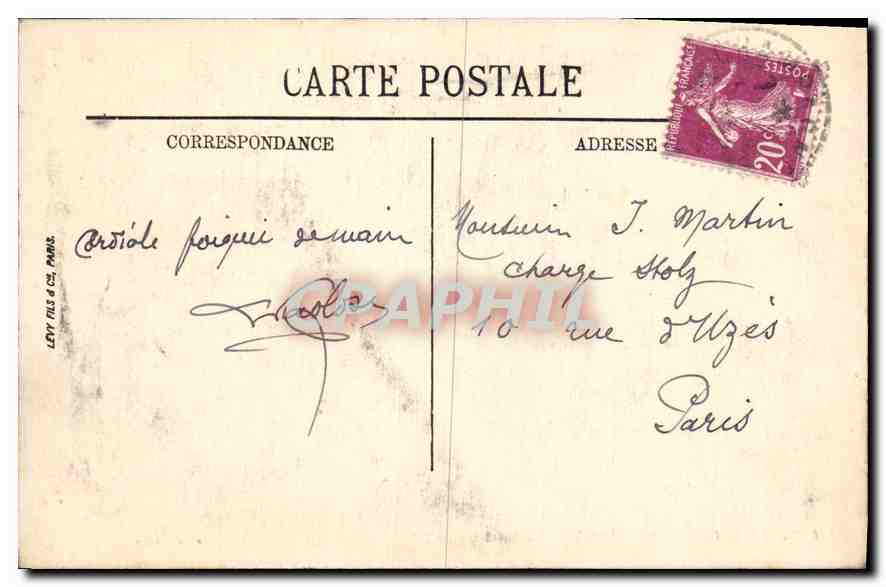 CARTE POSTALE
CORRESPONDANCE
ADRESSE
RÉPUBLIQUE FRANÇAISE
POSTES
20 c
LÉVY FILS & Cie, PARIS.
Cordiale poignée de main
Monsieur J. Martin
charge Stolz
10 rue d'Uzès
Paris
CPAPHIL